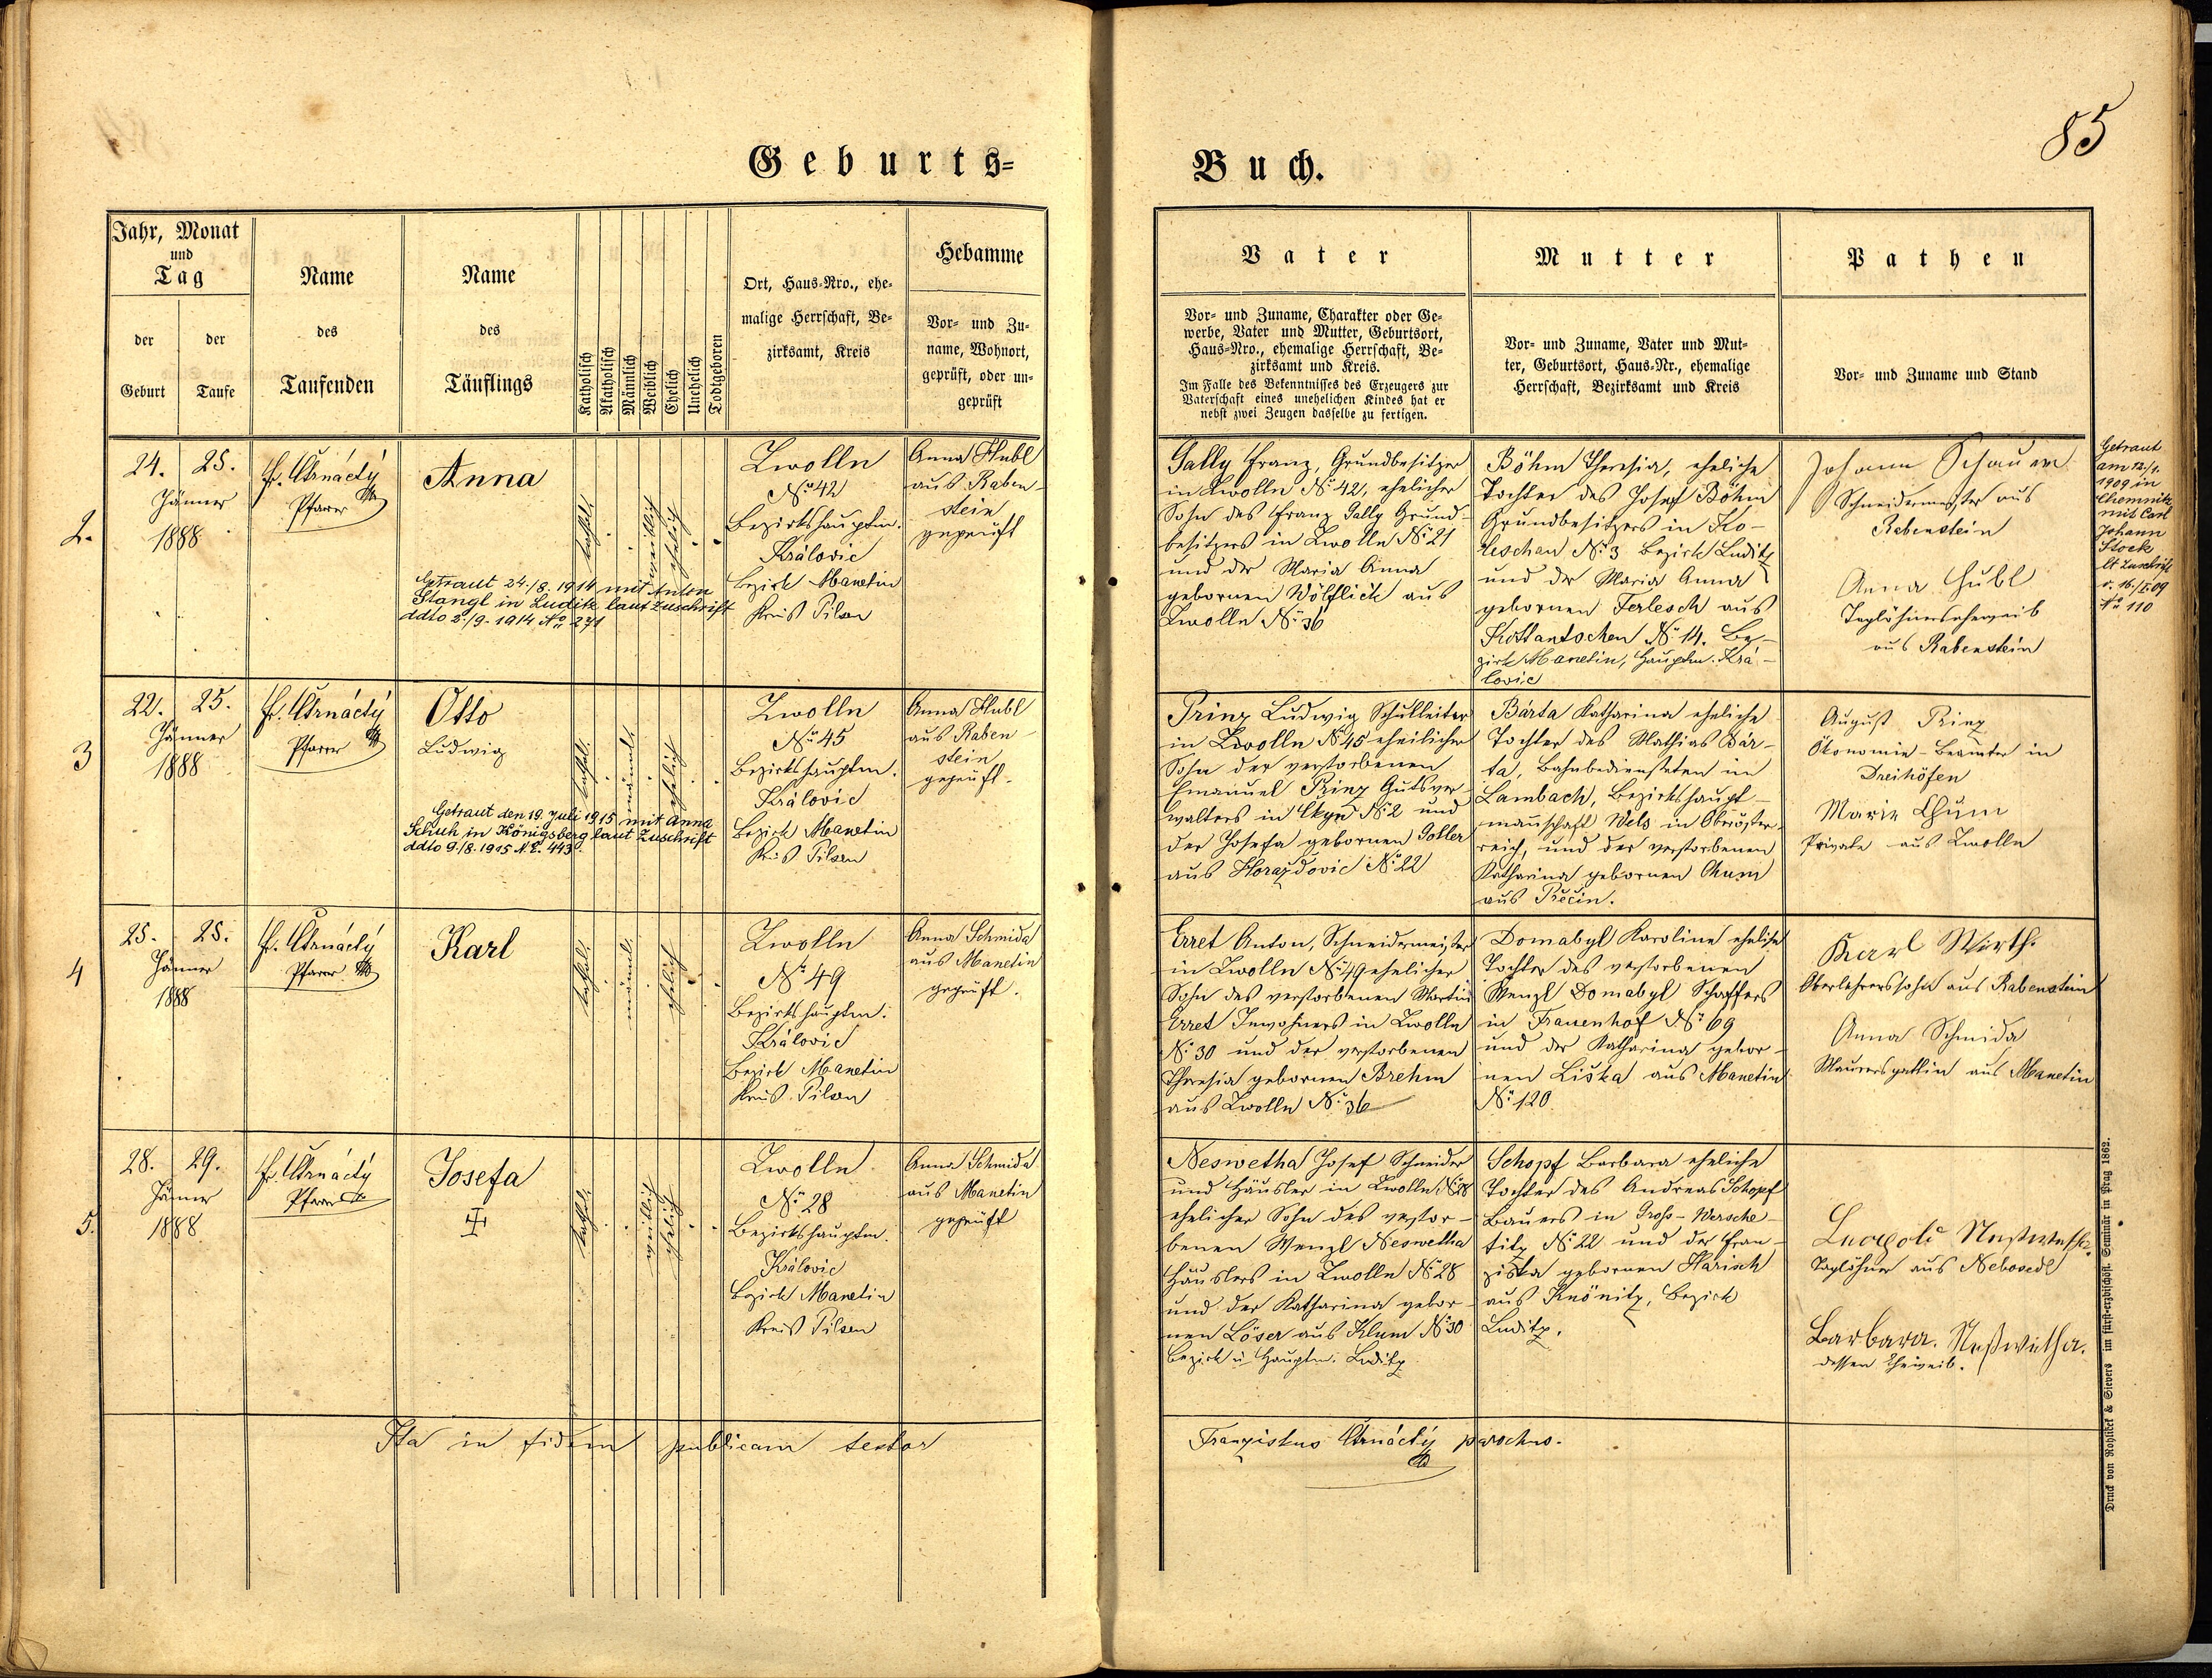 85
Geburts-
Buch.
Jahr, Monat
und
Tag
der
Geburt
der
Taufe
Name
des
Taufenden
Name
des
Täuflings
Katholisch
Akatholisch
Männlich
Weiblich
Ehelich
Unehelich
Todtgeboren
Ort, Haus-Nro., ehe-
malige Herrschaft, Be-
zirksamt, Kreis
Hebamme
Vor- und Zu-
name, Wohnort,
geprüft, oder un-
geprüft
Vater
Vor- und Zuname, Charakter oder Ge-
werbe, Vater und Mutter, Geburtsort,
Haus-Nro., ehemalige Herrschaft, Be-
zirksamt und Kreis.
Im Falle des Bekenntnisses des Erzeugers zur
Vaterschaft eines unehelichen Kindes hat er
nebst zwei Zeugen dasselbe zu fertigen.
Mutter
Vor- und Zuname, Vater und Mut-
ter, Geburtsort, Haus-Nr., ehemalige
Herrschaft, Bezirksamt und Kreis
Pathen
Vor- und Zuname und Stand
2.
24. 25.
Jänner
1888
Pfarrer
Anna
kathol.
weiblich
ehelich
Getraut 24./8. 1914 mit Anton
Stangl in Luditz laut Zuschrift
ddto 2./9. 1914 No. 271
Zwolln
No. 42
Bezirkshauptm.
Královic
Bezirk Manetin
Kreis Pilsen
Anna Hubl
aus Raben-
stein
geprüft
Gally Franz, Grundbesitzer
in Zwolln No. 42, ehelicher
Sohn des Franz Gally Grund-
besitzers in Zwolln No. 21
und der Maria Anna
gebornen Wölflick aus
Zwolln No. 36
Böhm Theresia, eheliche
Tochter des Josef Böhm
Grundbesitzers in Ko-
leschau No. 3 Bezirk Luditz
und der Maria Anna
gebornen Ferlesch aus
Kottantschen No. 14. Be-
zirk Manetin, Hauptm. Krá-
lovic
Johann Schauer
Schneidermeister aus
Rabenstein
Anna Hubl
Taglöhnerseheweib
aus Rabenstein
Getraut
am 12./1.
1909 in
Chemnitz
mit Carl
Johann
Stock
lt Zuschrift
v. 16./I.09
No. 110
3
22. 25.
Jänner
1888
Pfarrer
Otto
Ludwig
kathol.
männl.
ehelich
Getraut den 19. Juli 1915 mit Anna
Schuh in Königsberg laut Zuschrift
ddto 9./8. 1915 N.E. 443
Zwolln
No. 45
Bezirkshauptm.
Královic
Bezirk Manetin
Kreis Pilsen
Anna Hubl
aus Raben-
stein
geprüft.
Prinz Ludwig Schulleiter
in Zwolln No. 45 ehelicher
Sohn der verstorbenen
Emanuel Prinz Gutsver-
walters in Ckyn No. 2 und
der Josefa gebornen Goller
aus Horazdovic No. 22
Bárta Katharina eheliche
Tochter des Mathias Bár-
ta, Bahnbediensteten in
Lambach, Bezirkshaupt-
mannschaft Wels in Oberöster-
reich, und der verstorbenen
Katharina gebornen Chum
aus Prečin.
August Prinz
Ökonomie-Beamter in
Dreihöfen
Marie Chum
Private aus Zwolln
4
25. 25.
Jänner
1888
Pfarrer
Karl
kathol.
männl.
ehelich
Zwolln
No. 49
Bezirkshauptm.
Královic
Bezirk Manetin
Kreis Pilsen
Anna Schmida
aus Manetin
geprüft.
Erret Anton, Schneidermeister
in Zwolln No. 49 ehelicher
Sohn des verstorbenen Martin
Erret Inwohners in Zwolln
No. 30 und der verstorbenen
Theresia gebornen Brehm
aus Zwolln No. 36
Domabyl Karoline eheliche
Tochter des verstorbenen
Wenzl Domabyl Schaffers
in Frauenhof No. 69
und der Katharina gebor-
nen Liška aus Manetin
No. 120
Karl Wirth.
Oberlehrerssohn aus Rabenstein
Anna Schmida
Maurersgattin aus Manetin
5.
28. 29.
Jänner
1888.
Pfarrer
Josefa
kathol.
weiblich
ehelich
Zwolln
No. 28
Bezirkshauptm.
Královic
Bezirk Manetin
Kreis Pilsen
Anna Schmida
aus Manetin
geprüft
Neswetha Josef Schneider
und Häusler in Zwolln No. 28
ehelicher Sohn des verstor-
benen Wenzl Neswetha
Häuslers in Zwolln No. 28
und der Katharina gebor-
nen Löser aus Klum No. 30
Bezirk u. Hauptm. Luditz
Schopf Barbara eheliche
Tochter des Andreas Schopf
Bauers in Gross-Wersche-
titz No. 22 und der Fran-
ziska gebornen Harisch
aus Knönitz, Bezirk
Luditz.
Taglöhner aus Nebosedl
Barbara. Neßwetha.
dessen Eheweib.
Ita in fidem publicam testor
Franziskus parochus.
Druck von Rohliček & Sievers im fürst-erzbischöfl. Seminär in Prag 1862.